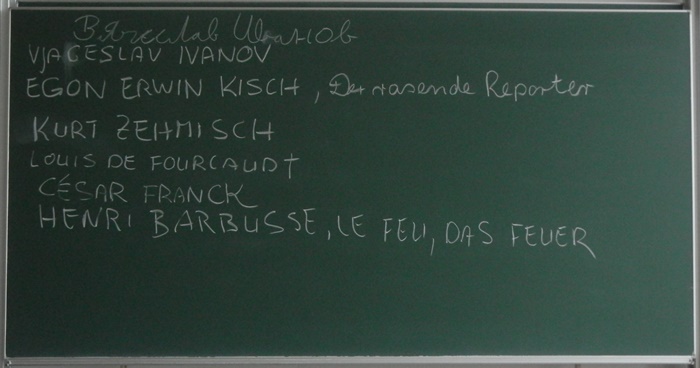 Вячеслав Иванов
VJAČESLAV IVANOV
EGON ERWIN KISCH, Der rasende Reporter
KURT ZEHMISCH
LOUIS DE FOURCAUDT
CÉSAR FRANCK
HENRI BARBUSSE, LE FEU, DAS FEUER